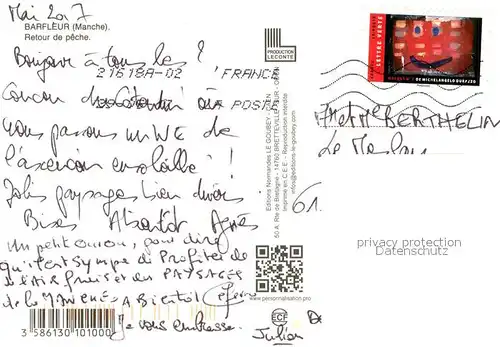 Mai 2017
BARFLEUR (Manche).
Retour de pêche.
Bonjour à tous les ?
21618A-02 FRANCE
Coucou du Cotentin où
LA POSTE
nous passons un WE de
l'ascension ensoleillé !
Jolis paysages bien divers.
Bises A bientôt Agnès
Un petit coucou, pour dire
qu'il est sympa de Profiter de
l'AIR frais et des PAYSAGES
de la MANCHE A Bientôt
3 586130 101000
Je vous embrasse.
Julien
PRODUCTION
LECONTE
Editions Normandes LE GOUBEY - CAEN
50 A, Rte de Bretagne - 14760 BRETTEVILLE SUR ODON
Imprimé en C.E.E. - Reproduction interdite
info@editions-le-goubey.com
www.personnalisation.pro
ECF
LETTRE VERTE
DE MICHELANGELO DURAZZO
M et Me BERTHELIN
61.
privacy protection
Datenschutz